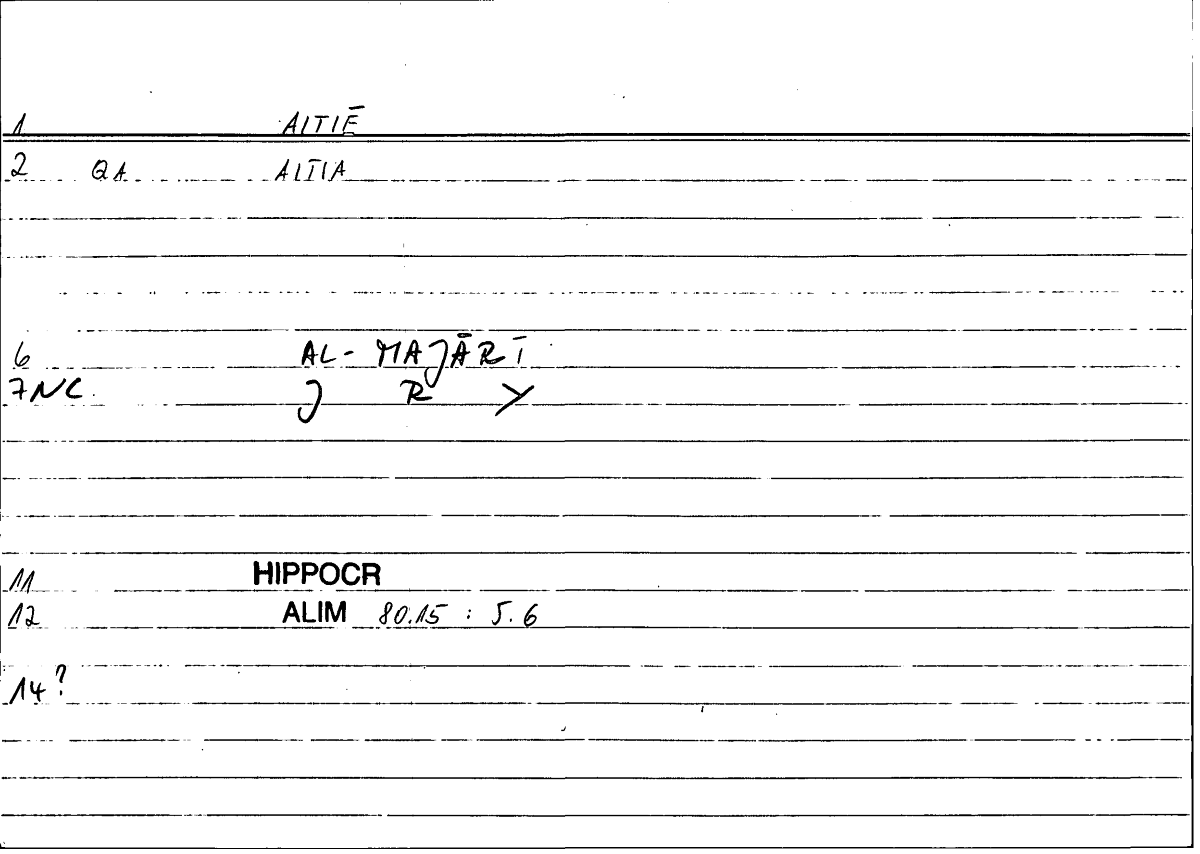 1 AITIĒ
2 QA AITIA
6 AL-MAJĀRĪ
7NC. J R Y
11 HIPPOCR
12 ALIM 80.15 : 5.6
14?